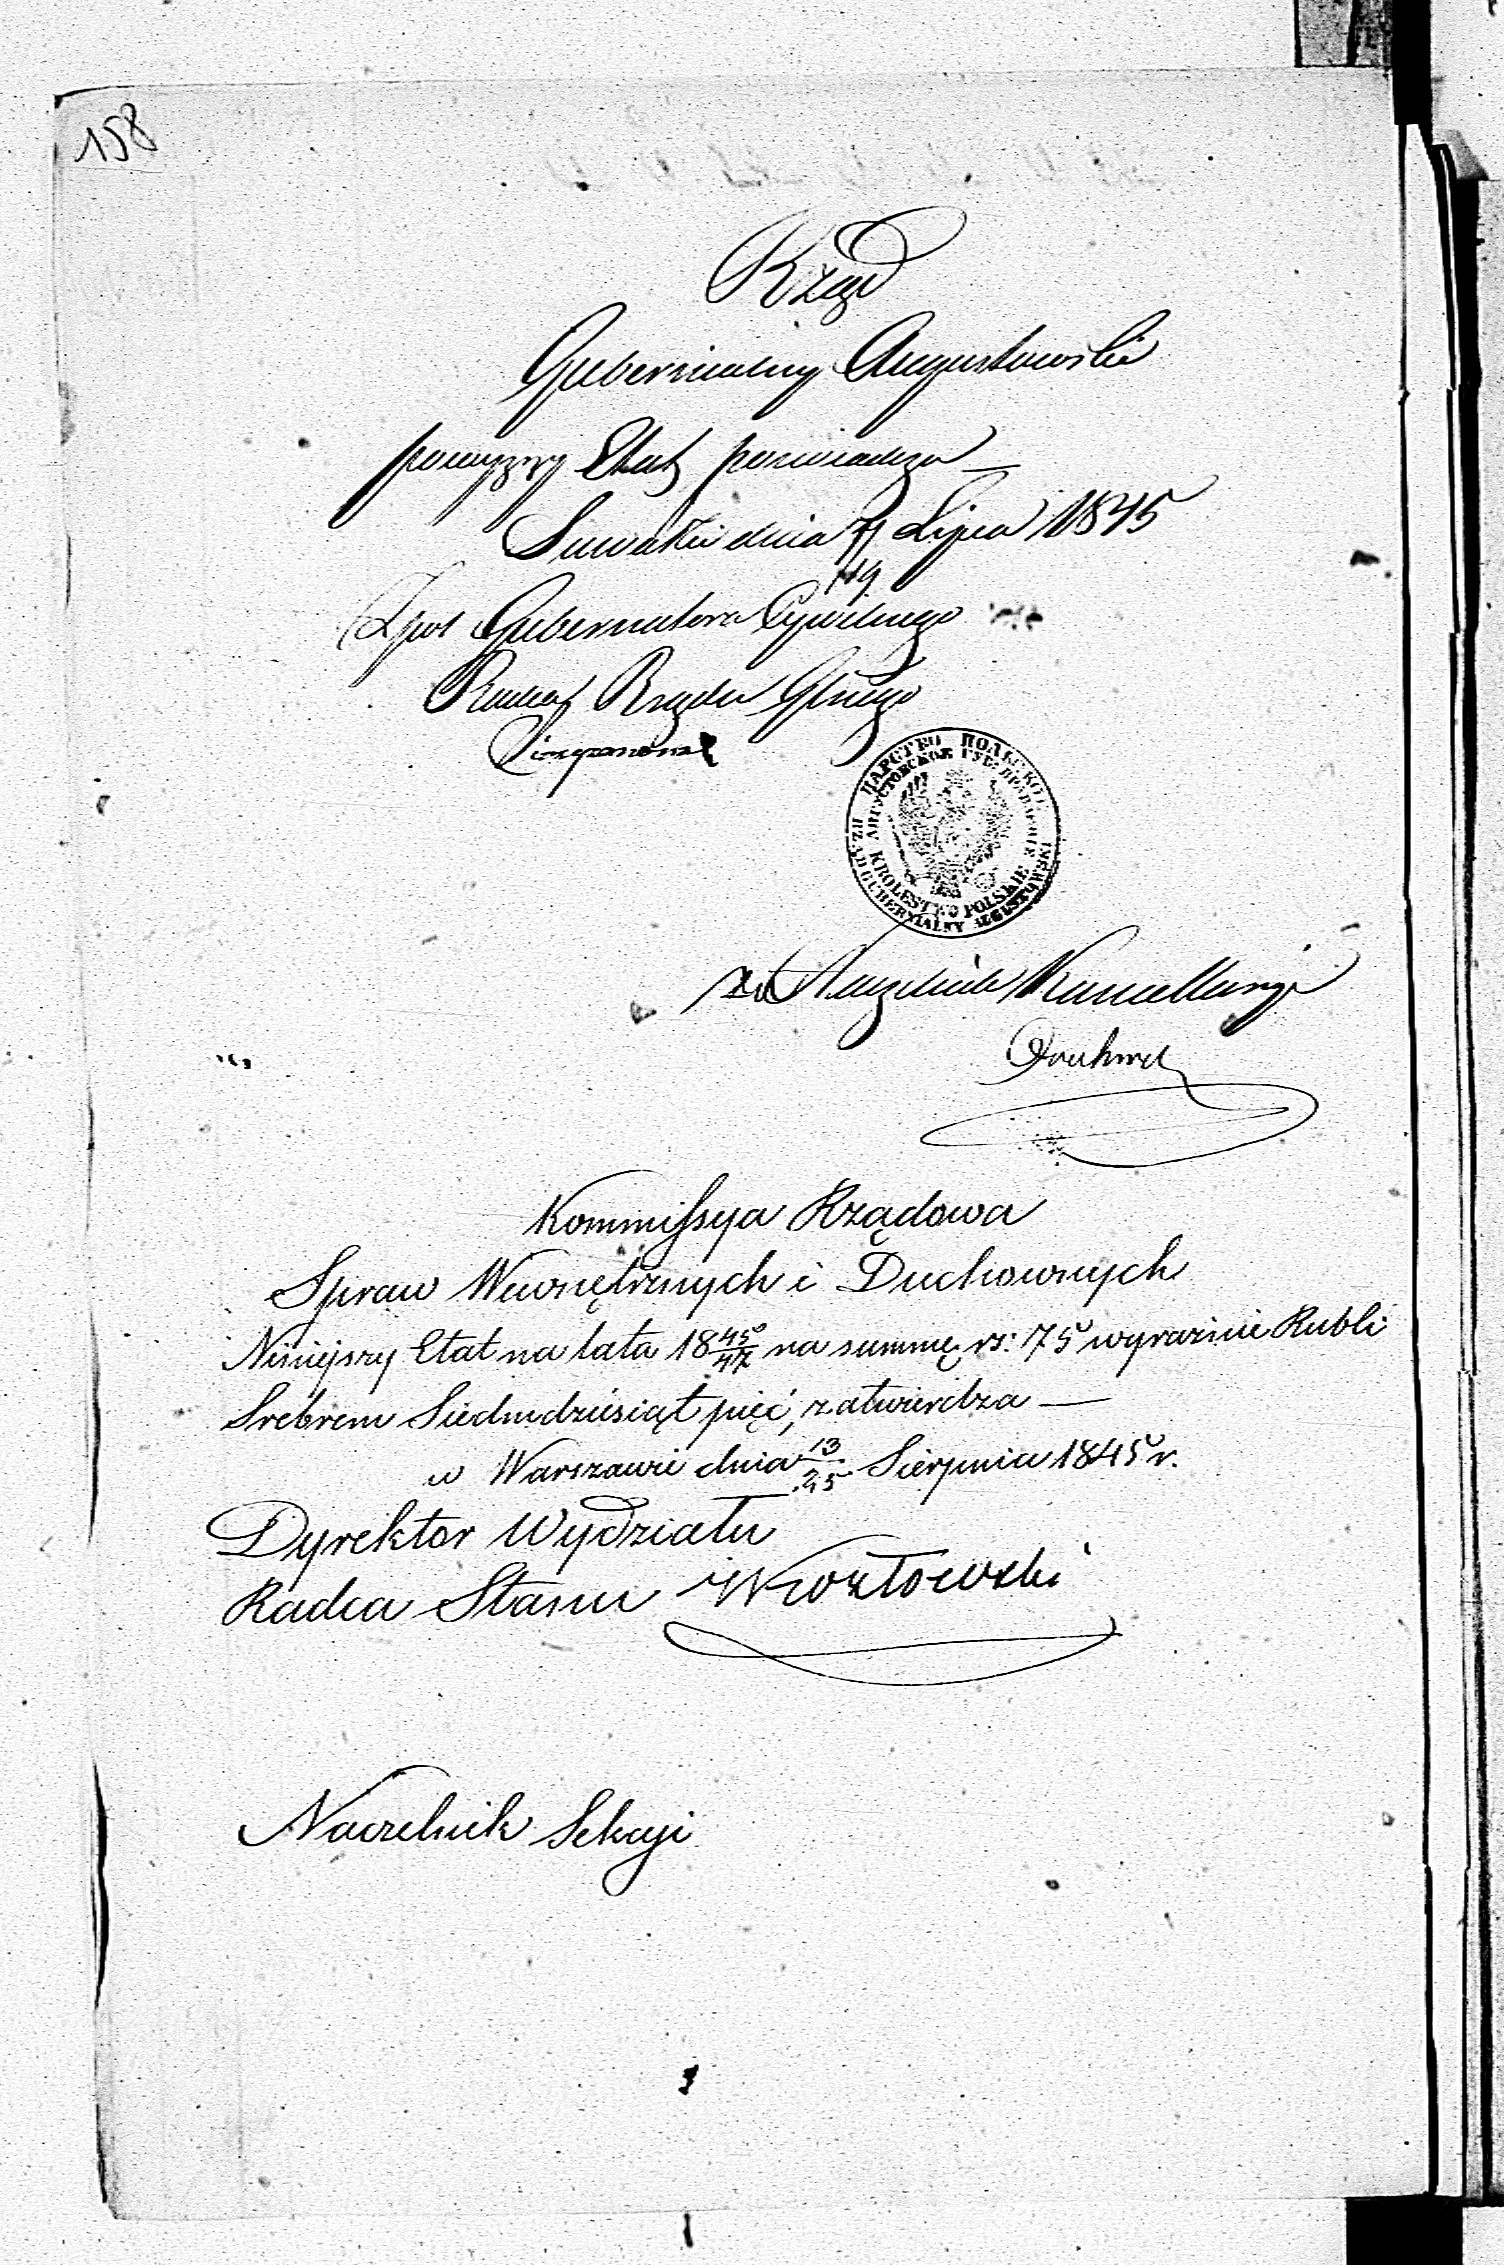 158
Rząd
Gubernialny Augustowski
powyższy Etat poswiadcza
Suwałki dnia Lipca 1845
Gubernatora Cywilnego
Radca Rządu Gbnego
ЦАРСТВО ПОЛЬСКОЕ
АВГУСТОВСКОЕ ГУБ: ПРАВЛЕНІЕ
KRÓLESTWO POLSKIE
RZĄD GUBERNIALNY AUGUSTOWSKI
za Naczelnika Kancellaryi
Kommissya Rządowa
Spraw Wewnętrznych i Duchownych
Niniejszy Etat na lata 18 45/47 na summę rs: 75 wyraźnie Rubli
Srebrem Siedmdziesiąt pięć, zatwierdza —
w Warszawie dnia 13/25 Sierpnia 1845 r.
Dyrektor Wydziału
Radca Stanu Kozłowski
Naczelnik Sekcyi